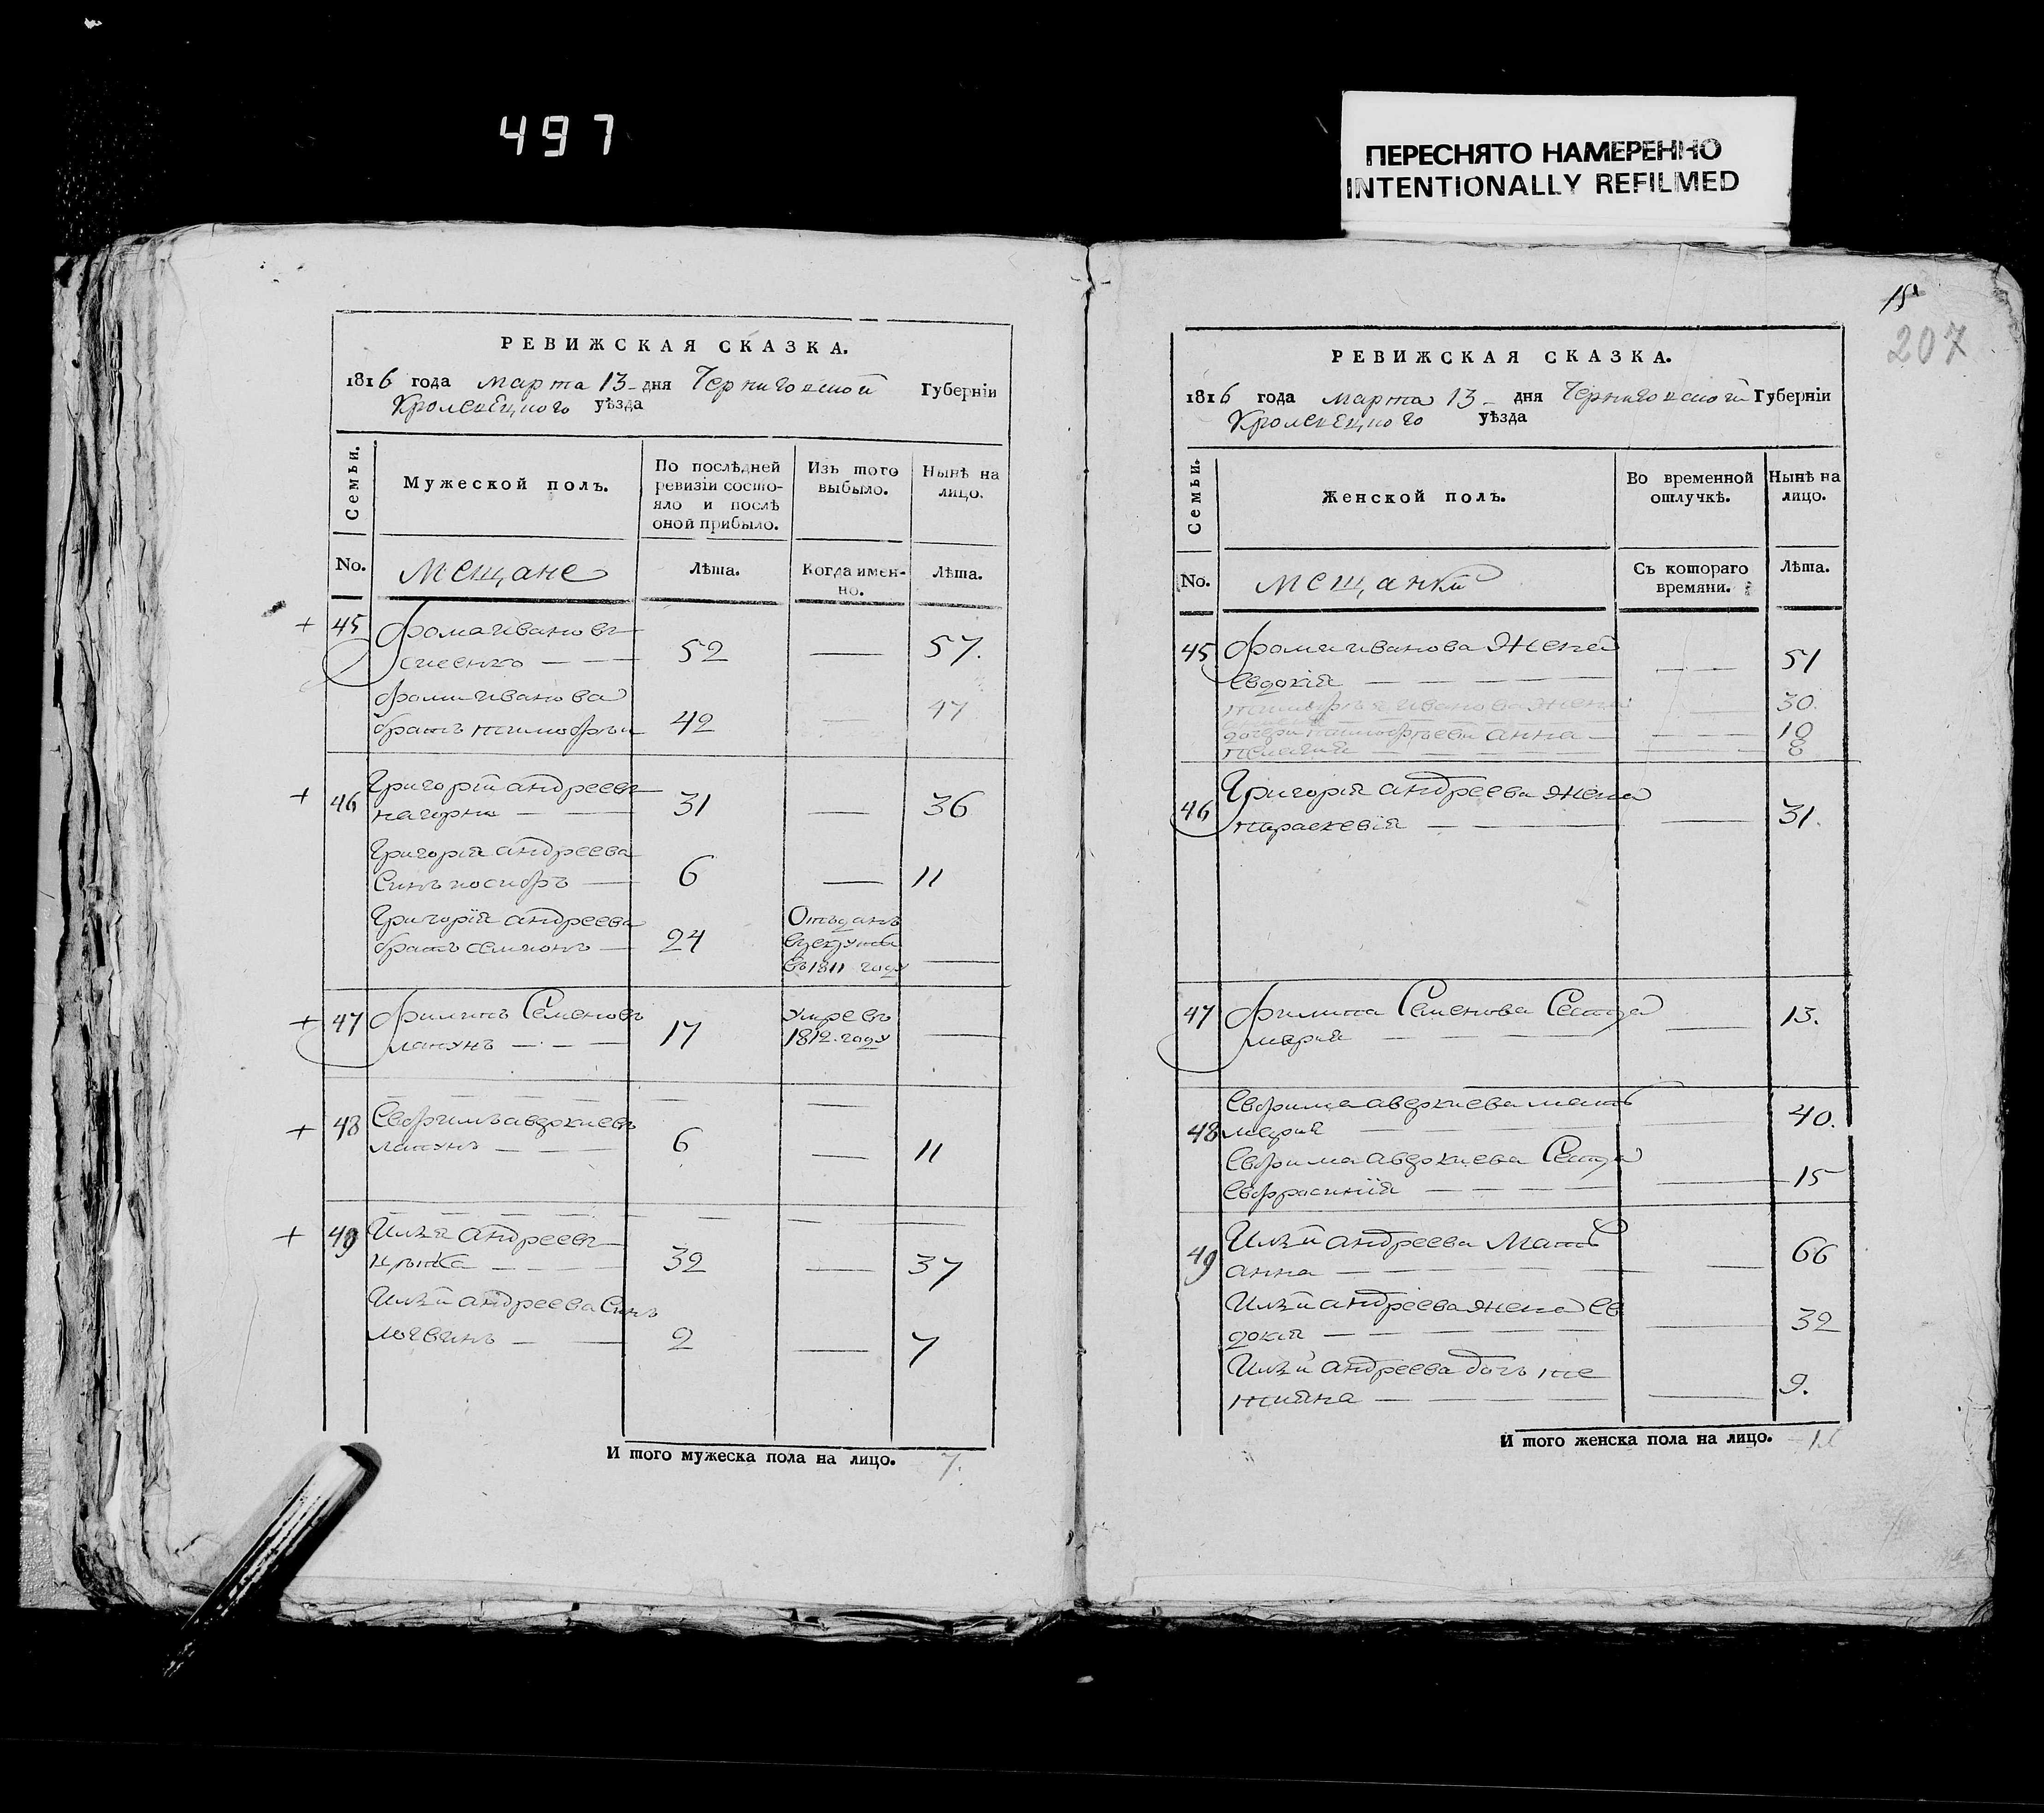 497
ПЕРЕСНЯТО НАМЕРЕННО
INTENTIONALLY REFILMED
РЕВИЖСКАЯ СКАЗКА.
1816 года марта 13 дня Черниговской Губернїи
Кролевецкого уѣзда
Семьи.
Мужеской полъ.
По послѣдней
ревизїи состо-
яло и послѣ
оной прибыло.
Изъ того
выбыло.
Нынѣ на
лицо.
No.
Мещане
Лѣта.
Когда имен-
но.
Лѣта.
+ 45 Фома Ивановъ
52 — 57.
Фоми Иванова
братъ тимофѣи 42 — 47
+ 46 Григорїй андреевъ
нагорни — 31 — 36
Григорїя андреева
Синъ иосифъ — 6 — 11
Григорїя андреева
братъ семионъ — 24
Отъданъ
врекрути
въ 1811 году —
+ 47 Филипъ Семеновъ
лапунъ — 17
Умре въ
1812 году —
+ 48 Евфимъ авдокиевъ
лапунъ — 6 — 11
+ 49 Илѣя андреевъ
32 — 37
Илѣи андреева Синъ
логвинъ — 2 — 7
И того мужеска пола на лицо. 7.
15
207
РЕВИЖСКАЯ СКАЗКА.
1816 года марта 13 дня Черниговской Губернїи
Кролевецкого уѣзда
Семьи.
Женской полъ.
Во временной
отлучкѣ.
Нынѣ на
лицо.
No.
мещанки
Съ котораго
времяни.
Лѣта.
45 Фоми иванова Жена
Евдокїя — 51
тимофѣя иванова жена
30.
дочери тимофѣеви анна — 10
пелагия — 8
46 Григорїя андреева жена
параскевїя — 31.
47 Филипа Семенова Сестра
марїя — 13.
48 Евфима авдокиева мать
марїя — 40.
Евфима авдокиева Сестра
Евфрасинїя — 15
49 Илѣи андреева Мать
анна — 66
Илѣи андреева жена Ев
докїя — 32
Илѣи андреева дочь
9.
И того женска пола на лицо.